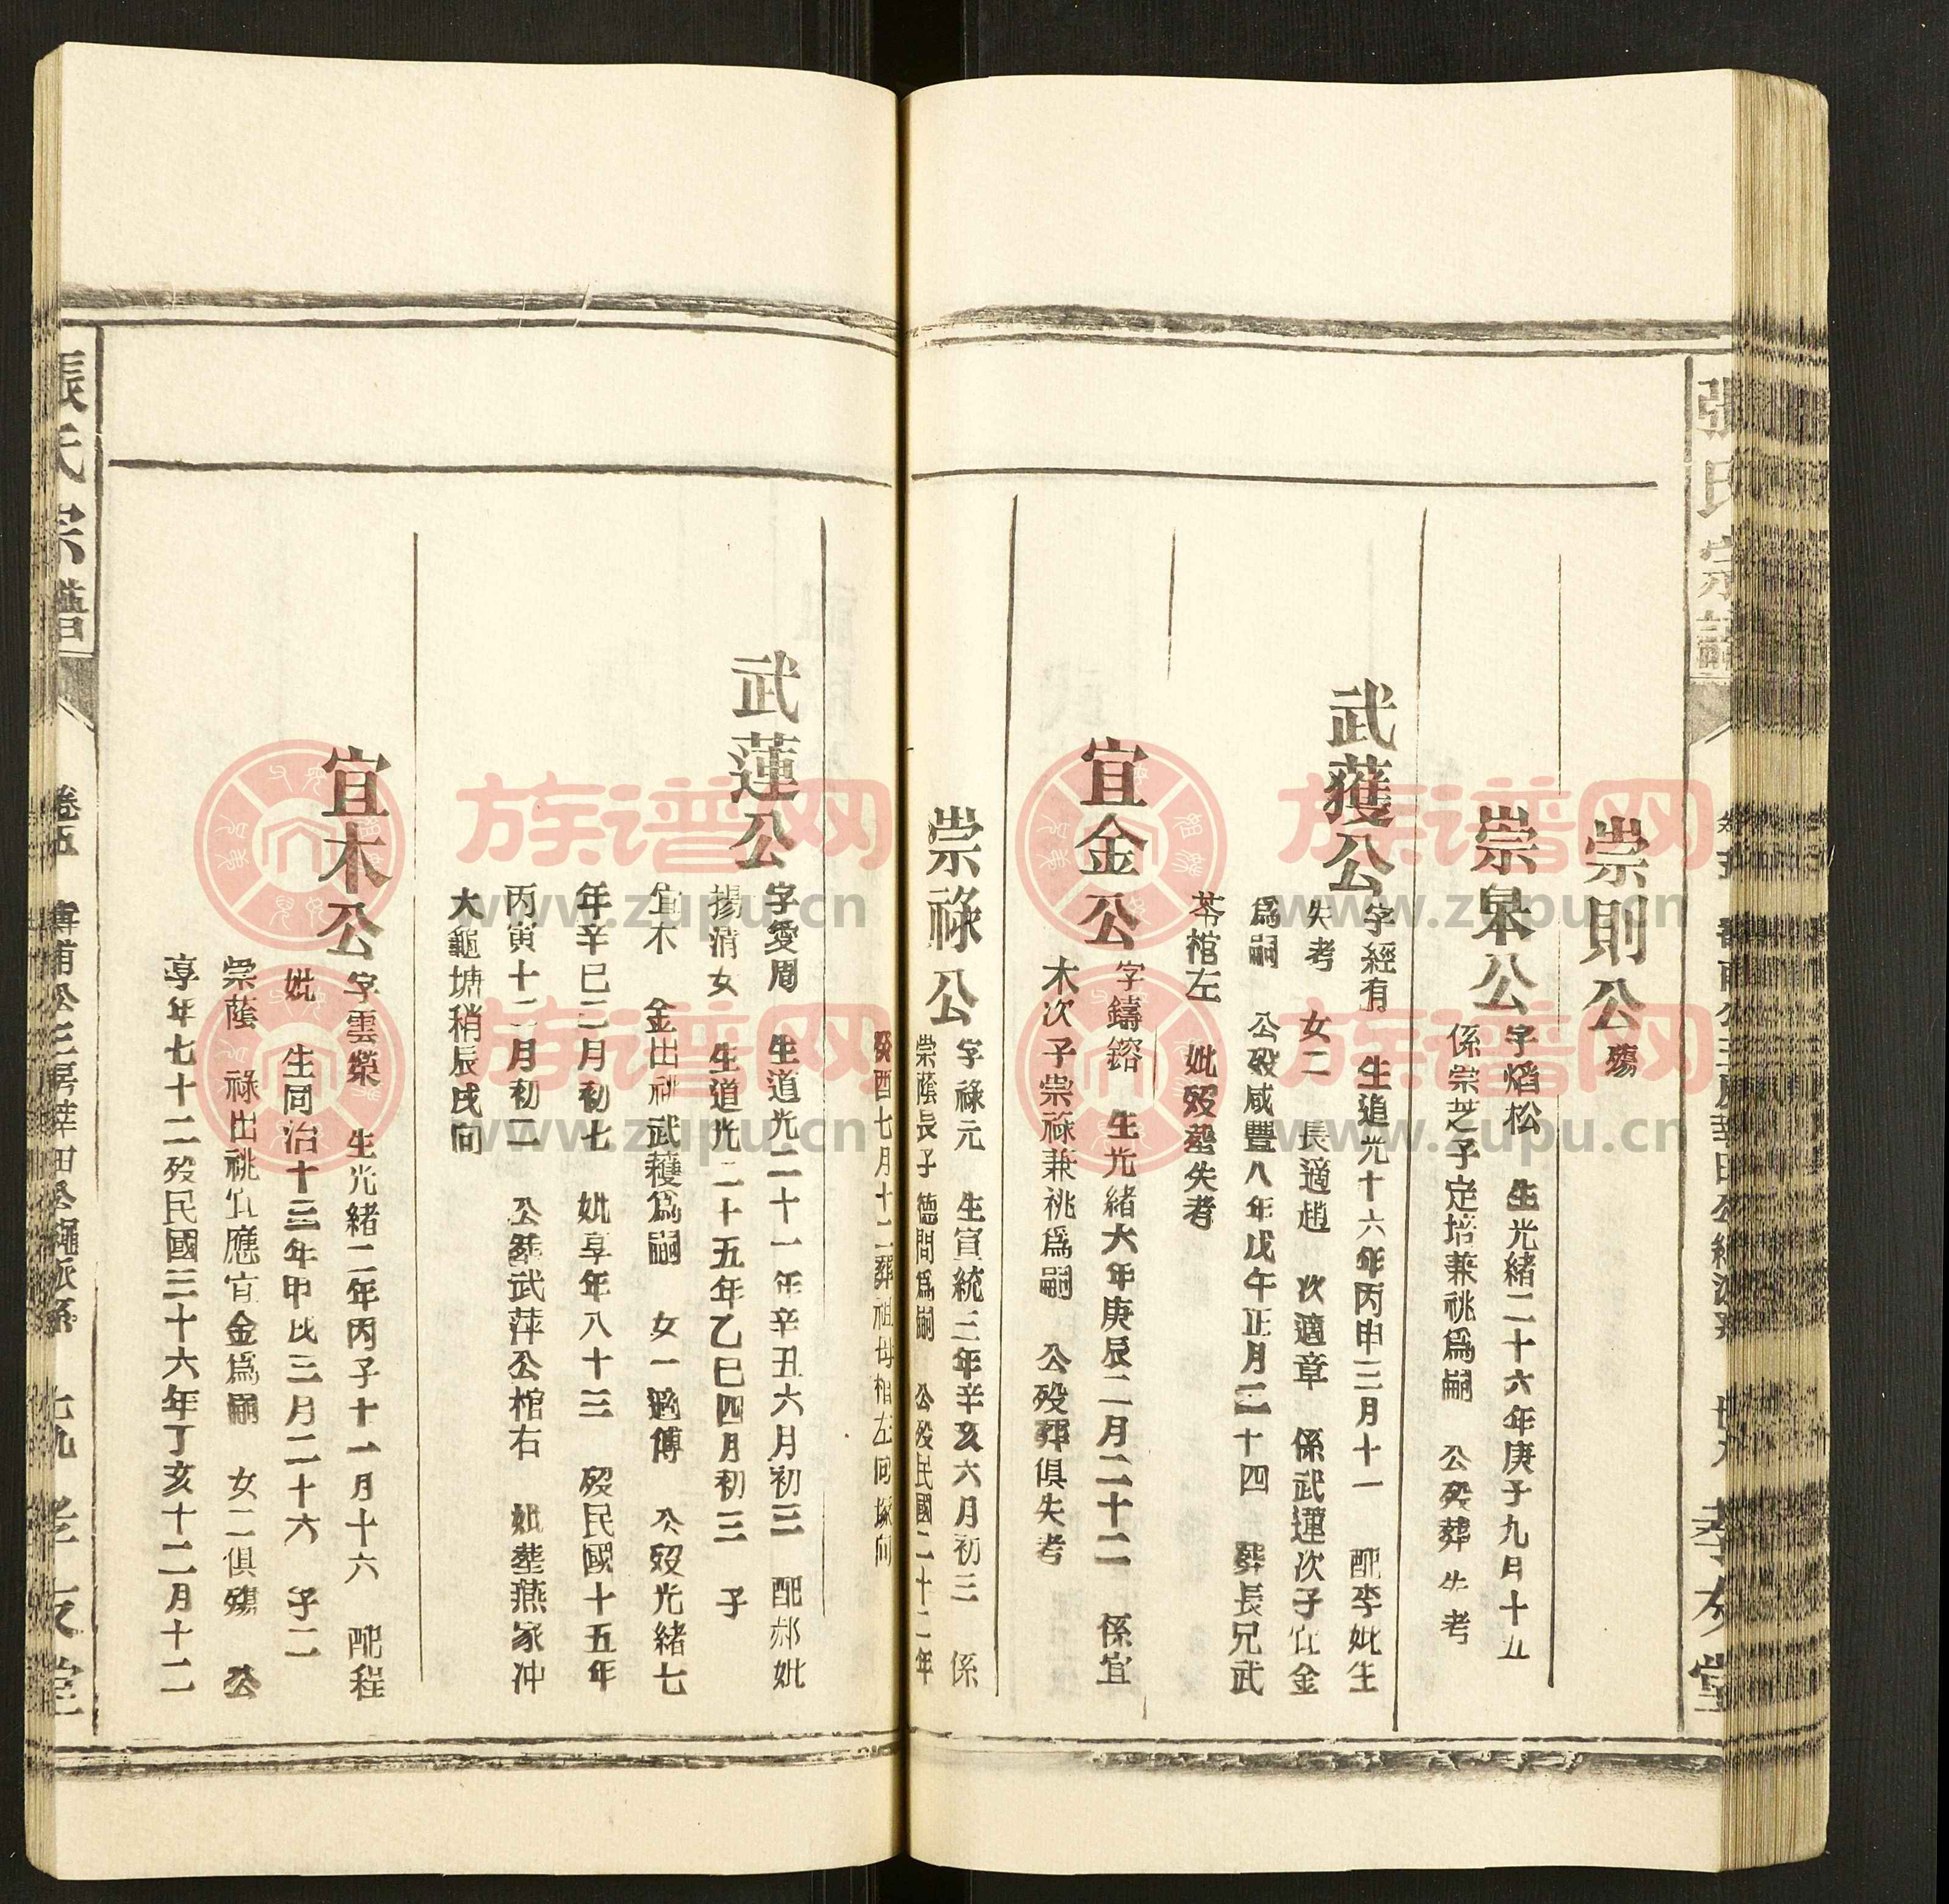 張氏宗譜
孝友堂
崇則公 殤
崇皋公 字熖松 生光緒二十六年庚子九月十五
係崇芝子定培兼祧爲嗣 公殁葬失考
武獲公 字經有 生道光十六年丙申三月十一 配李妣生
失考 女二 長適趙 次適章 係武蓮次子宜金
爲嗣 公殁咸豐八年戊午正月二十四 葬長兄武
苓棺左 妣殁塟失考
宜金公 字鑄鎔 生光緒六年庚辰二月二十二 係宜
木次子崇祿兼祧爲嗣 公殁葬俱失考
崇祿公 字祿元 生宣統三年辛亥六月初三 係
崇蔭長子德間爲嗣 公殁民國二十二年
癸酉七月十二葬祖母棺左同塚向
武蓮公 字愛周 生道光二十一年辛丑六月初三 配郝妣
揚清女 生道光二十五年乙巳四月初三 子二
宜木 金出祧武穫爲嗣 女一適傅 公殁光緒七
年辛巳二月初七 妣享年八十三 殁民國十五年
丙寅十二月初二 公塟武萍公棺右 妣塟燕家冲
大龜塘稍辰戌向
宜木公 字雲榮 生光緒二年丙子十一月十六 配程
妣 生同治十三年甲戌三月二十六 子二
崇蔭 祿出祧宜應宜金爲嗣 女二俱殤 公
享年七十二殁民國三十六年丁亥十二月十二
張氏宗譜
卷五
七九
孝友堂
族谱网
www.zupu.cn
族谱网
www.zupu.cn
族谱网
www.zupu.cn
族谱网
www.zupu.cn